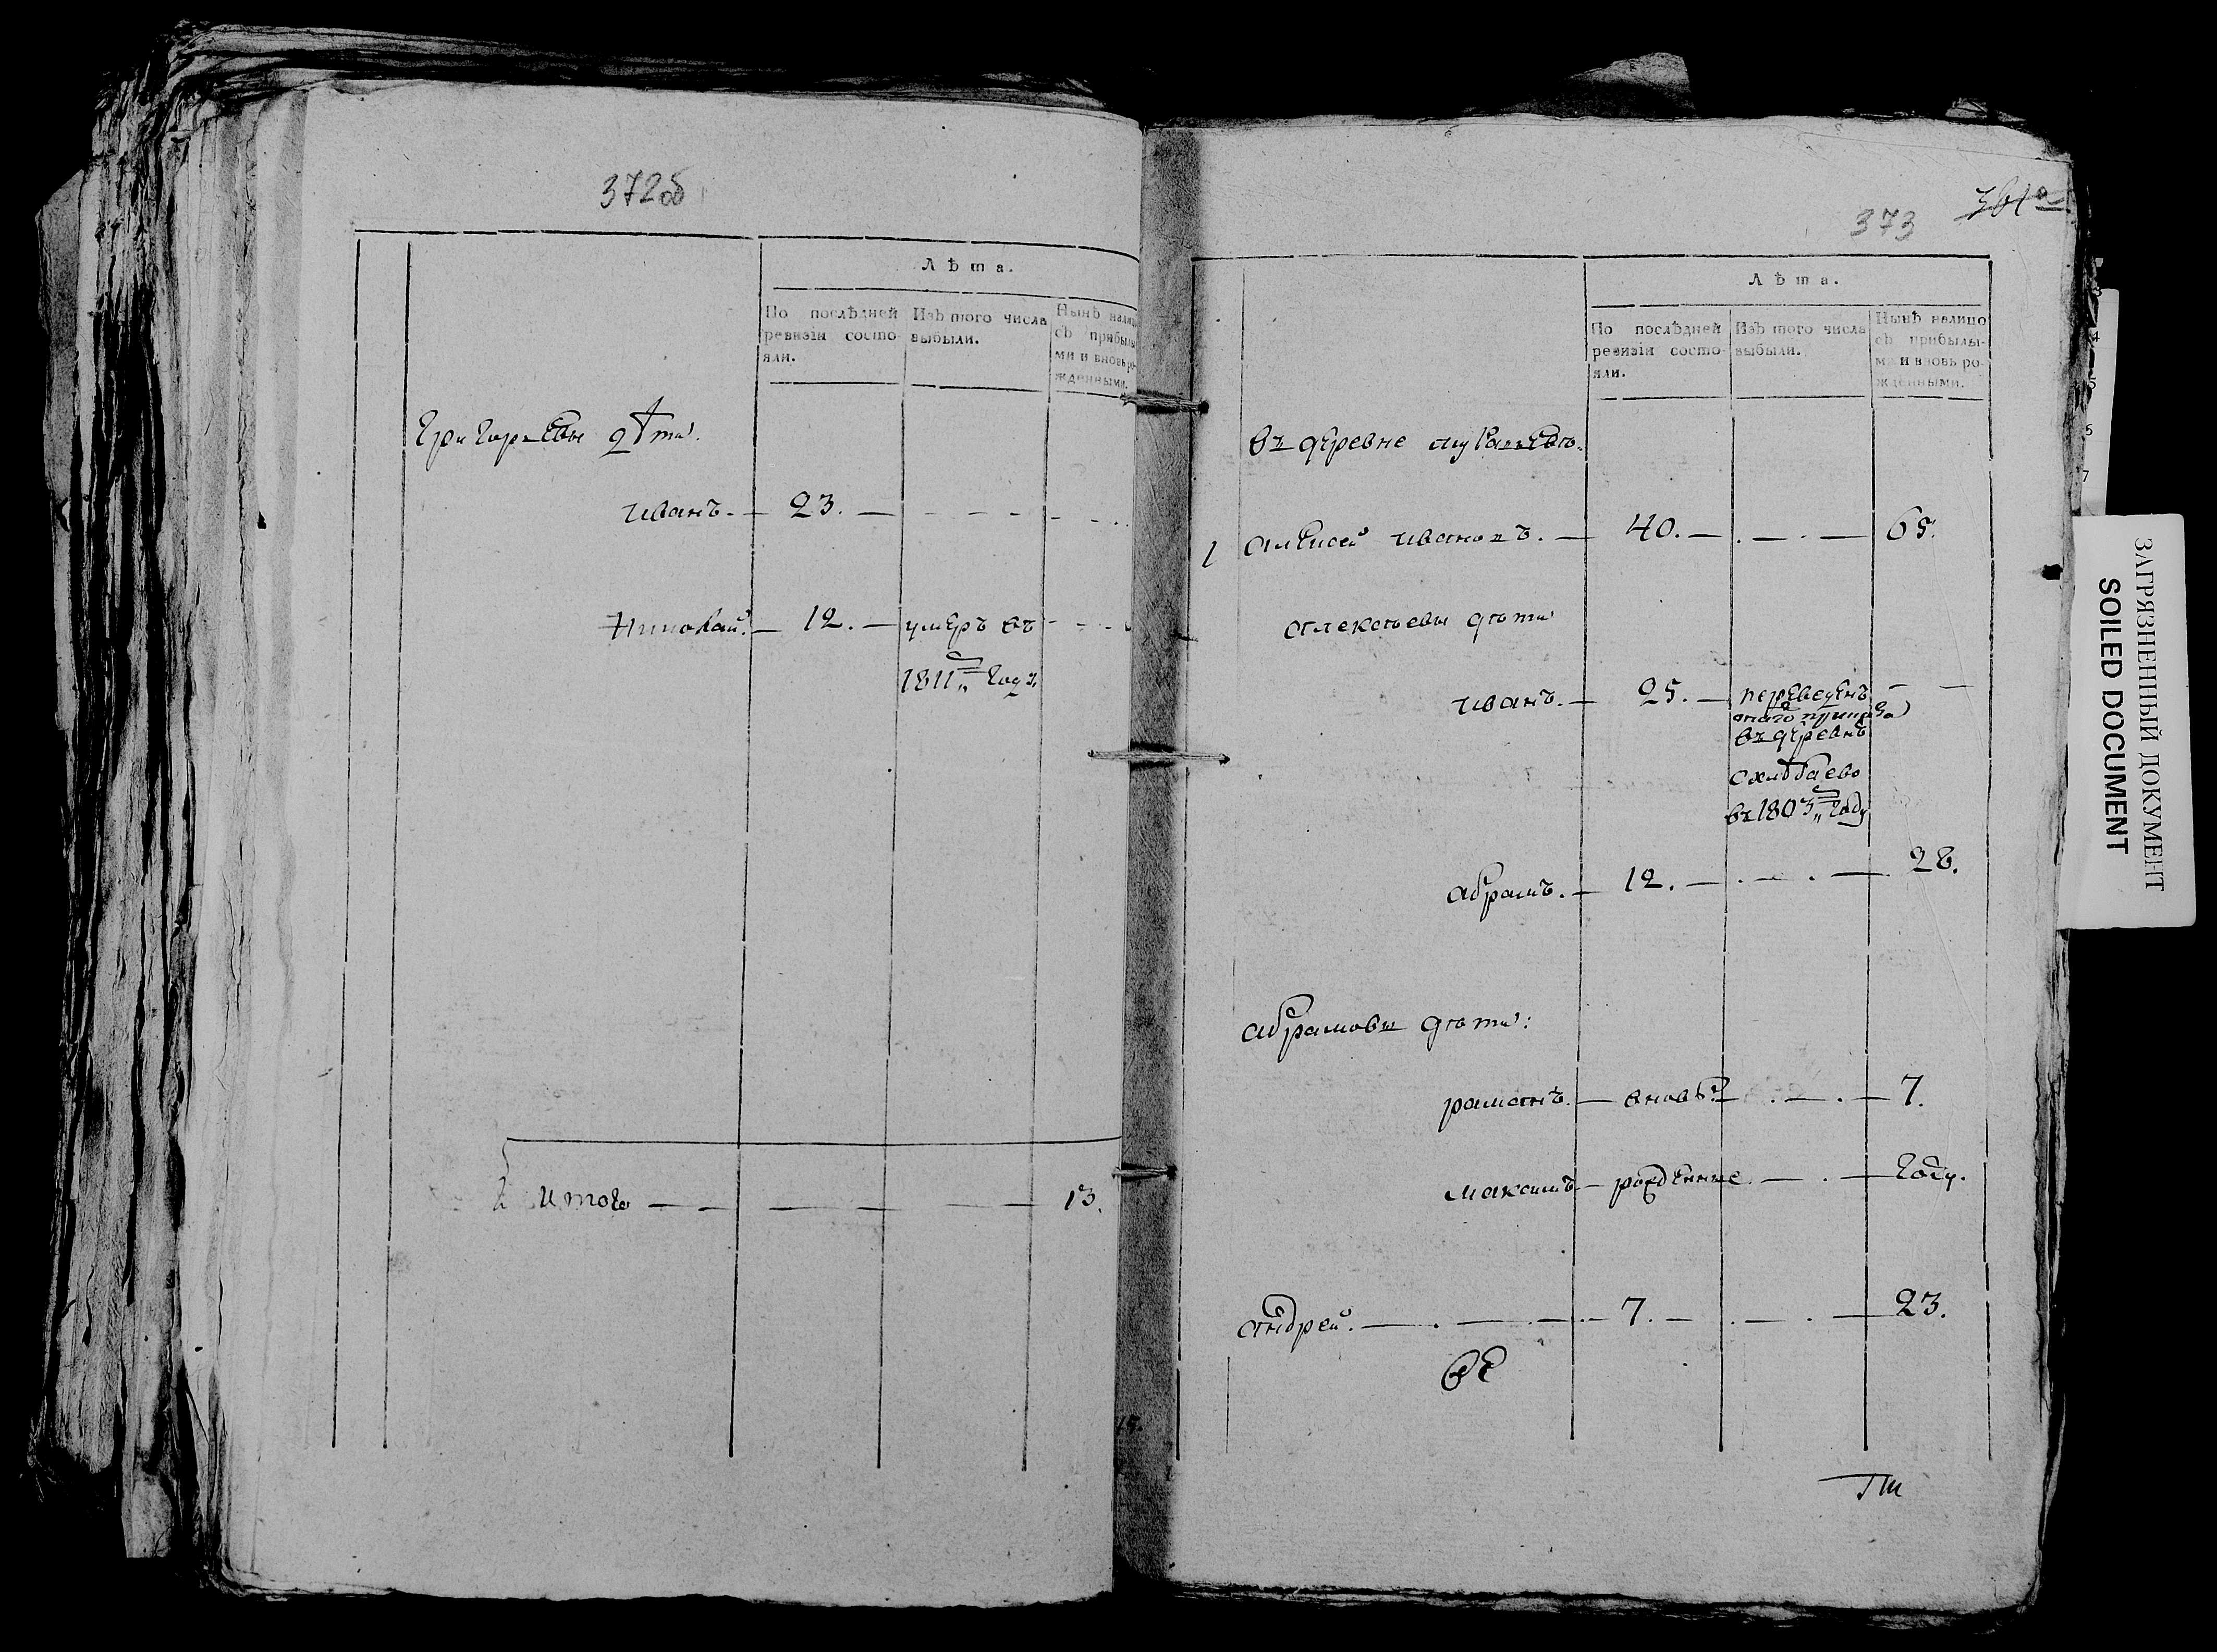 372об
Лѣта.
По послѣдней
ревизіи состо-
яли.
Изъ того числа
выбыли.
Нынѣ налицо
съ прибылы
ми и вновь ро-
жденными.
Григорьевы дѣти.
иванъ. 23.
Николай. 12. умеръ въ
1811м году.
Итого 13.
361а
373
Лѣта.
По послѣдней
ревизіи состо-
яли.
Изъ того числа
выбыли.
Нынѣ налицо
съ прибылы-
ми и вновь ро-
жденными.
въ деревне
1 алексей ивановъ. 40. 65.
алексѣевы дѣти
иванъ. 25. переведенъ
въ деревнѣ
въ 1803м году
абрамъ. 12. 28.
абрамовы дѣти:
раманъ. вновь 7.
максимъ рожденные году.
андрей. 7. 23.
ЗАГРЯЗНЕННЫЙ ДОКУМЕНТ
SOILED DOCUMENT